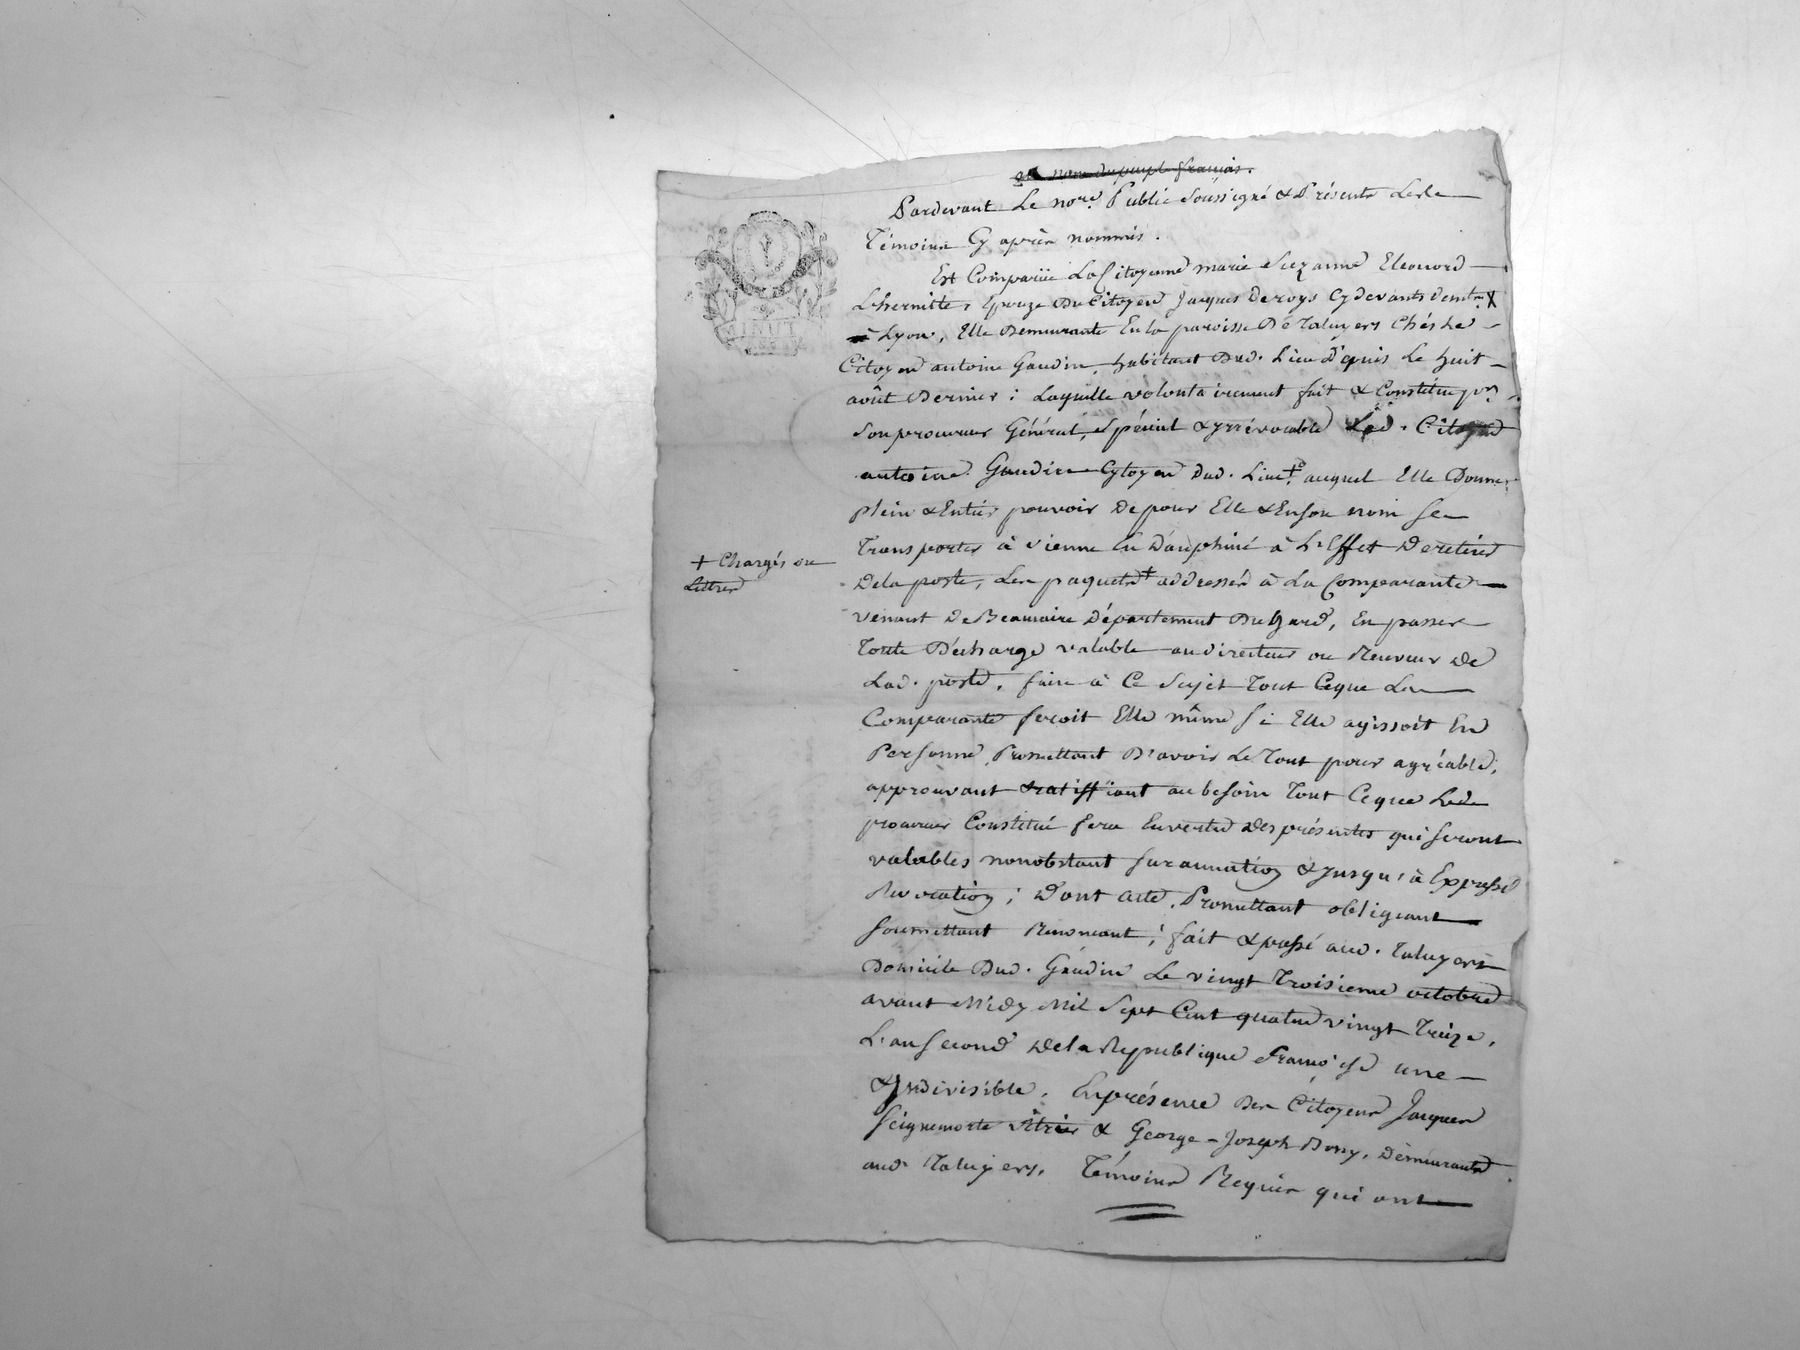 au nom du peuple français.
Pardevant Le no.re Public soussigné & Présents Les
Témoins Cy après nommés.
Est Comparüe La Citoyenne marie Suzanne Eleonord
L'hermitte, Epouze Du Citoyen Jacques Deroys Cydevants demt.
à Lyon, Elle Demeurante En la paroisse De Taluyers Chés Le
Citoyen antoine Gaudin, habitant Dud. Lieu D'epuis Le huit
août Dernier; Laquelle volontairement fait & Constitue pr.
Son procureur Général, Spécial & yrrévocable Led. Citoyen
antoine Gaudin Cytoyen Dud. Lieu, auquel Elle Donne
plein & Entier pouvoir De pour Elle & En son nom se
Transporter à Vienne En Dauphiné à L'Effet De retirer
+ Chargés ou
Lettres
De la poste, Les paquets + addressés à La Comparante
venant De Beaucaire Département Du Gard, En passer
Toute Décharge valable au directeur ou Receveur De
Lad. poste, faire à Ce Sujet Tout Ceque La
Comparante feroit Elle même Si Elle agissoit En
Personne, Promettant D'avoir Le Tout pour agréable,
approuvant & ratiffiant au besoin Tout Ceque Led.
procureur Constitué fera En vertu Des présentes qui seront
valables nonobstant Surannation & Jusqu'à Expresse
Revocation; Dont acte, Promettant obligeant
Soumettant Renonceant; fait & passé aud. Taluyers
Domicile Dud. Gaudin Le vingt Troisieme octobre
avant Midy Mil Sept Cent quatre vingt Treize,
L'an Second De la Republique Françoise une
& Indivisible, En présence Des Citoyens Jacques
Seignemorte vitrier & George-Joseph Bony, Demeurants
aud. Taluyers, Témoins Requis qui ont